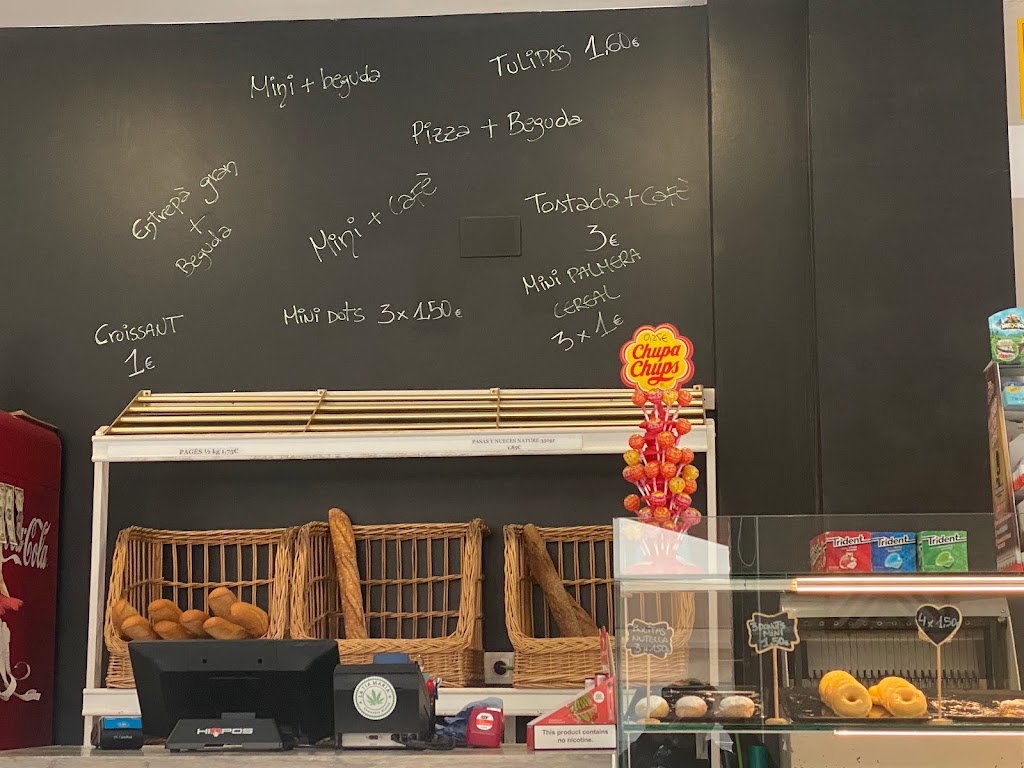 Mini + beguda
TULIPAS 1,60€
Pizza + Beguda
Entrepà gran
+
Beguda
Mini + Cafè
Tostada + Cafè
3€
MINI PALMERA
CEREAL
3 x 1€
MINI DOTS 3 x 1,50€
CROISSANT
1€
0,25€
Chupa
Chups
PAGÉS ½ kg 1,75€
PASAS Y NUECES NATURE
Coca-Cola
Trident
Trident
Trident
NUTELLA
3 x 1'50
3 DONUTS
MINI
1'50€
4 x 1'50
HIOPOS
This product contains
no nicotine.